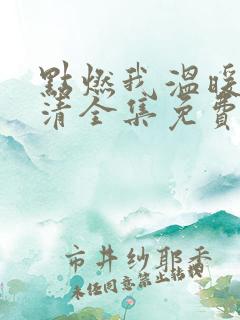 點燃我,溫暖
清全集免費
市井紗耶香
未任同意禁止轉載